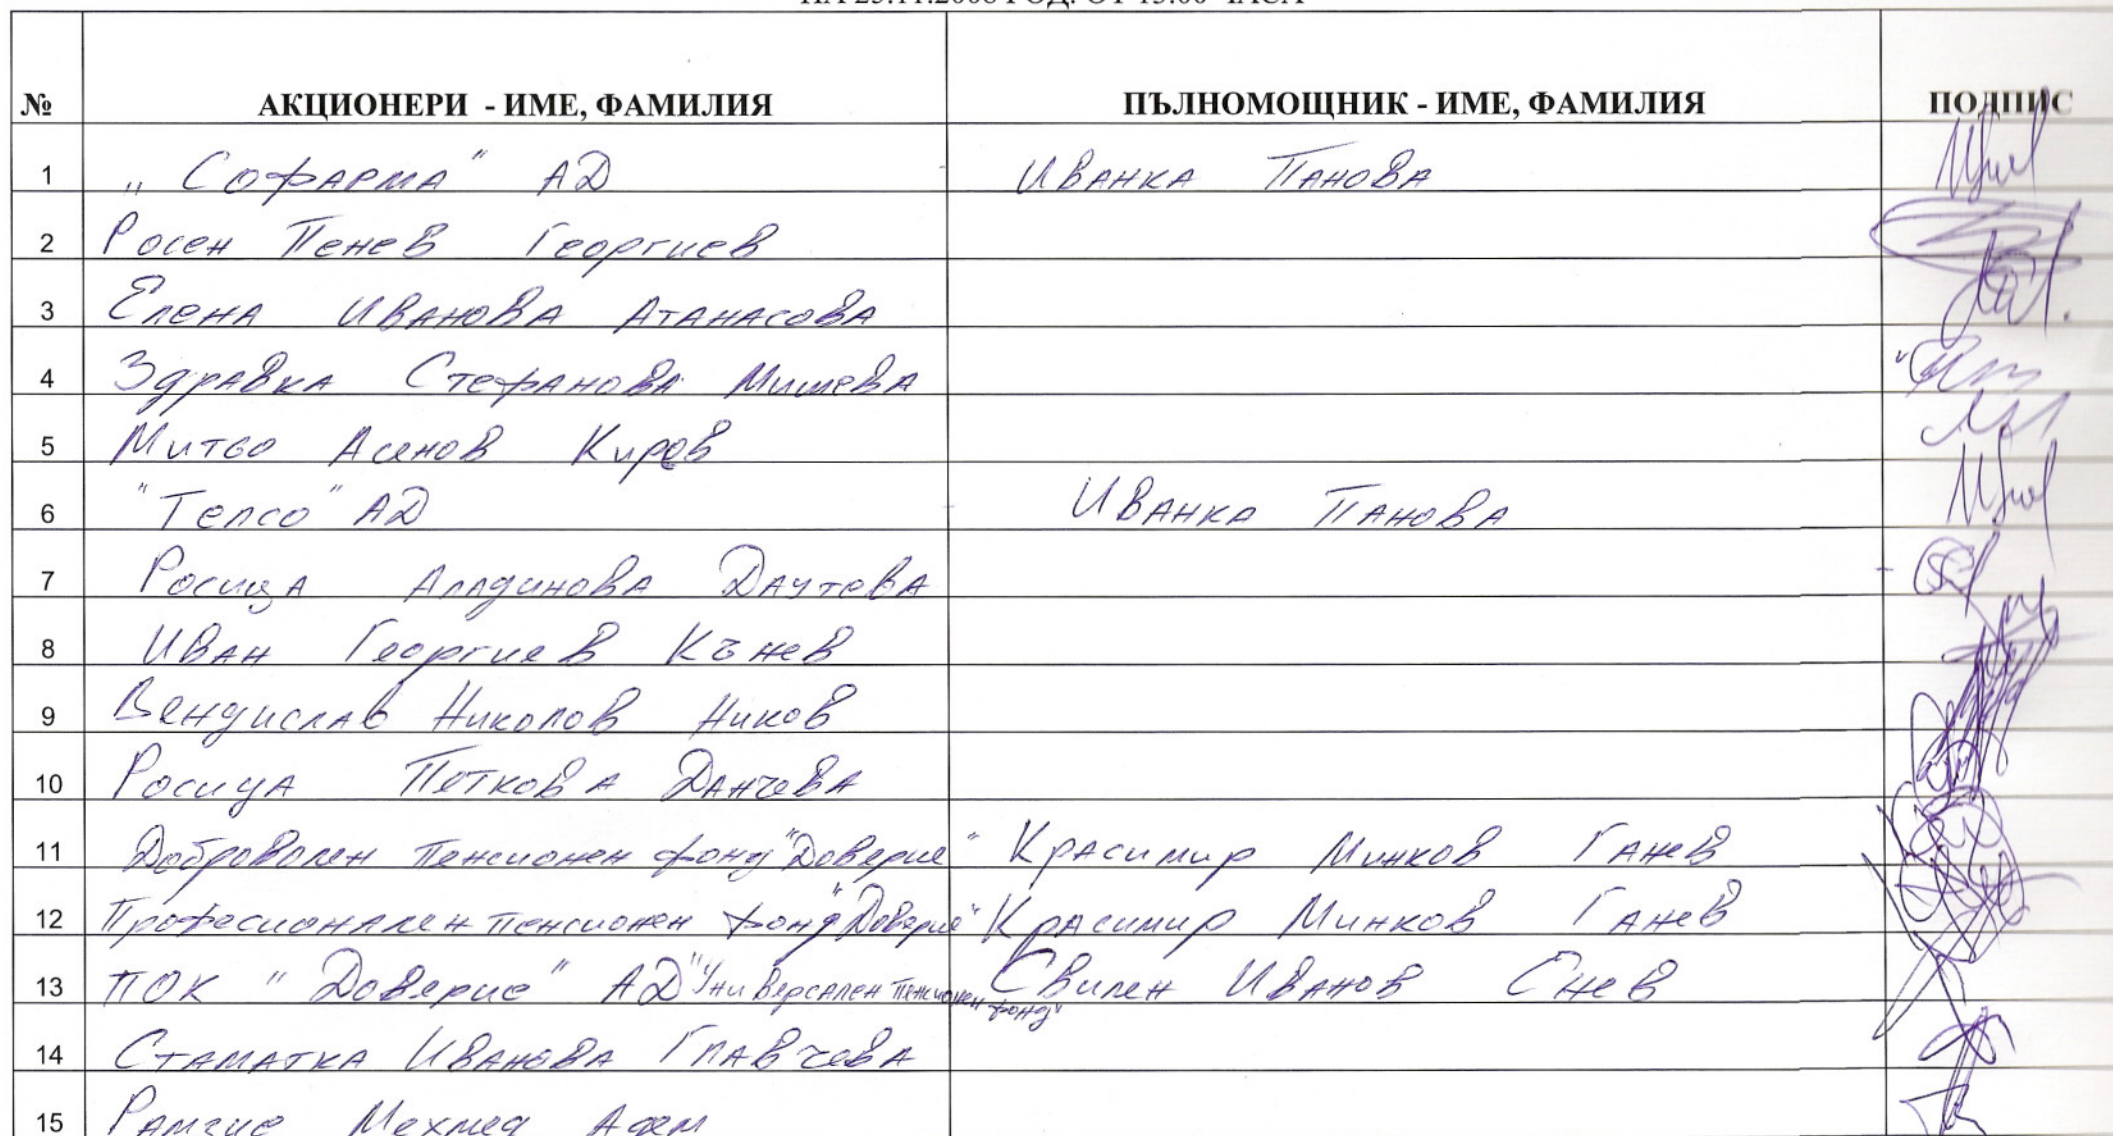 НА 25.11.2008 ГОД. ОТ 13.00 ЧАСА
№ АКЦИОНЕРИ - ИМЕ, ФАМИЛИЯ ПЪЛНОМОЩНИК - ИМЕ, ФАМИЛИЯ ПОДПИС
1 „Софарма" АД Иванка Панова
2 Росен Пенев Георгиев
3 Елена Иванова Атанасова
4 Здравка Стефанова Мишева
5 Митво Асенов Киров
6 "Телсо" АД Иванка Панова
7 Росица Алядинова Даутева
8 Иван Георгиев Кънев
9 Вендислав Николов Ников
10 Росица Петкова Данчева
11 Доброволен пенсионен фонд "Доверие" Красимир Минков Ганев
12 Професионален пенсионен фонд "Доверие" Красимир Минков Ганев
13 ПОК "Доверие" АД "Универсален пенсионен фонд" Свилен Иванов Енев
14 Стаматка Иванова Главчева
15 Рамзие Мехмед Адем